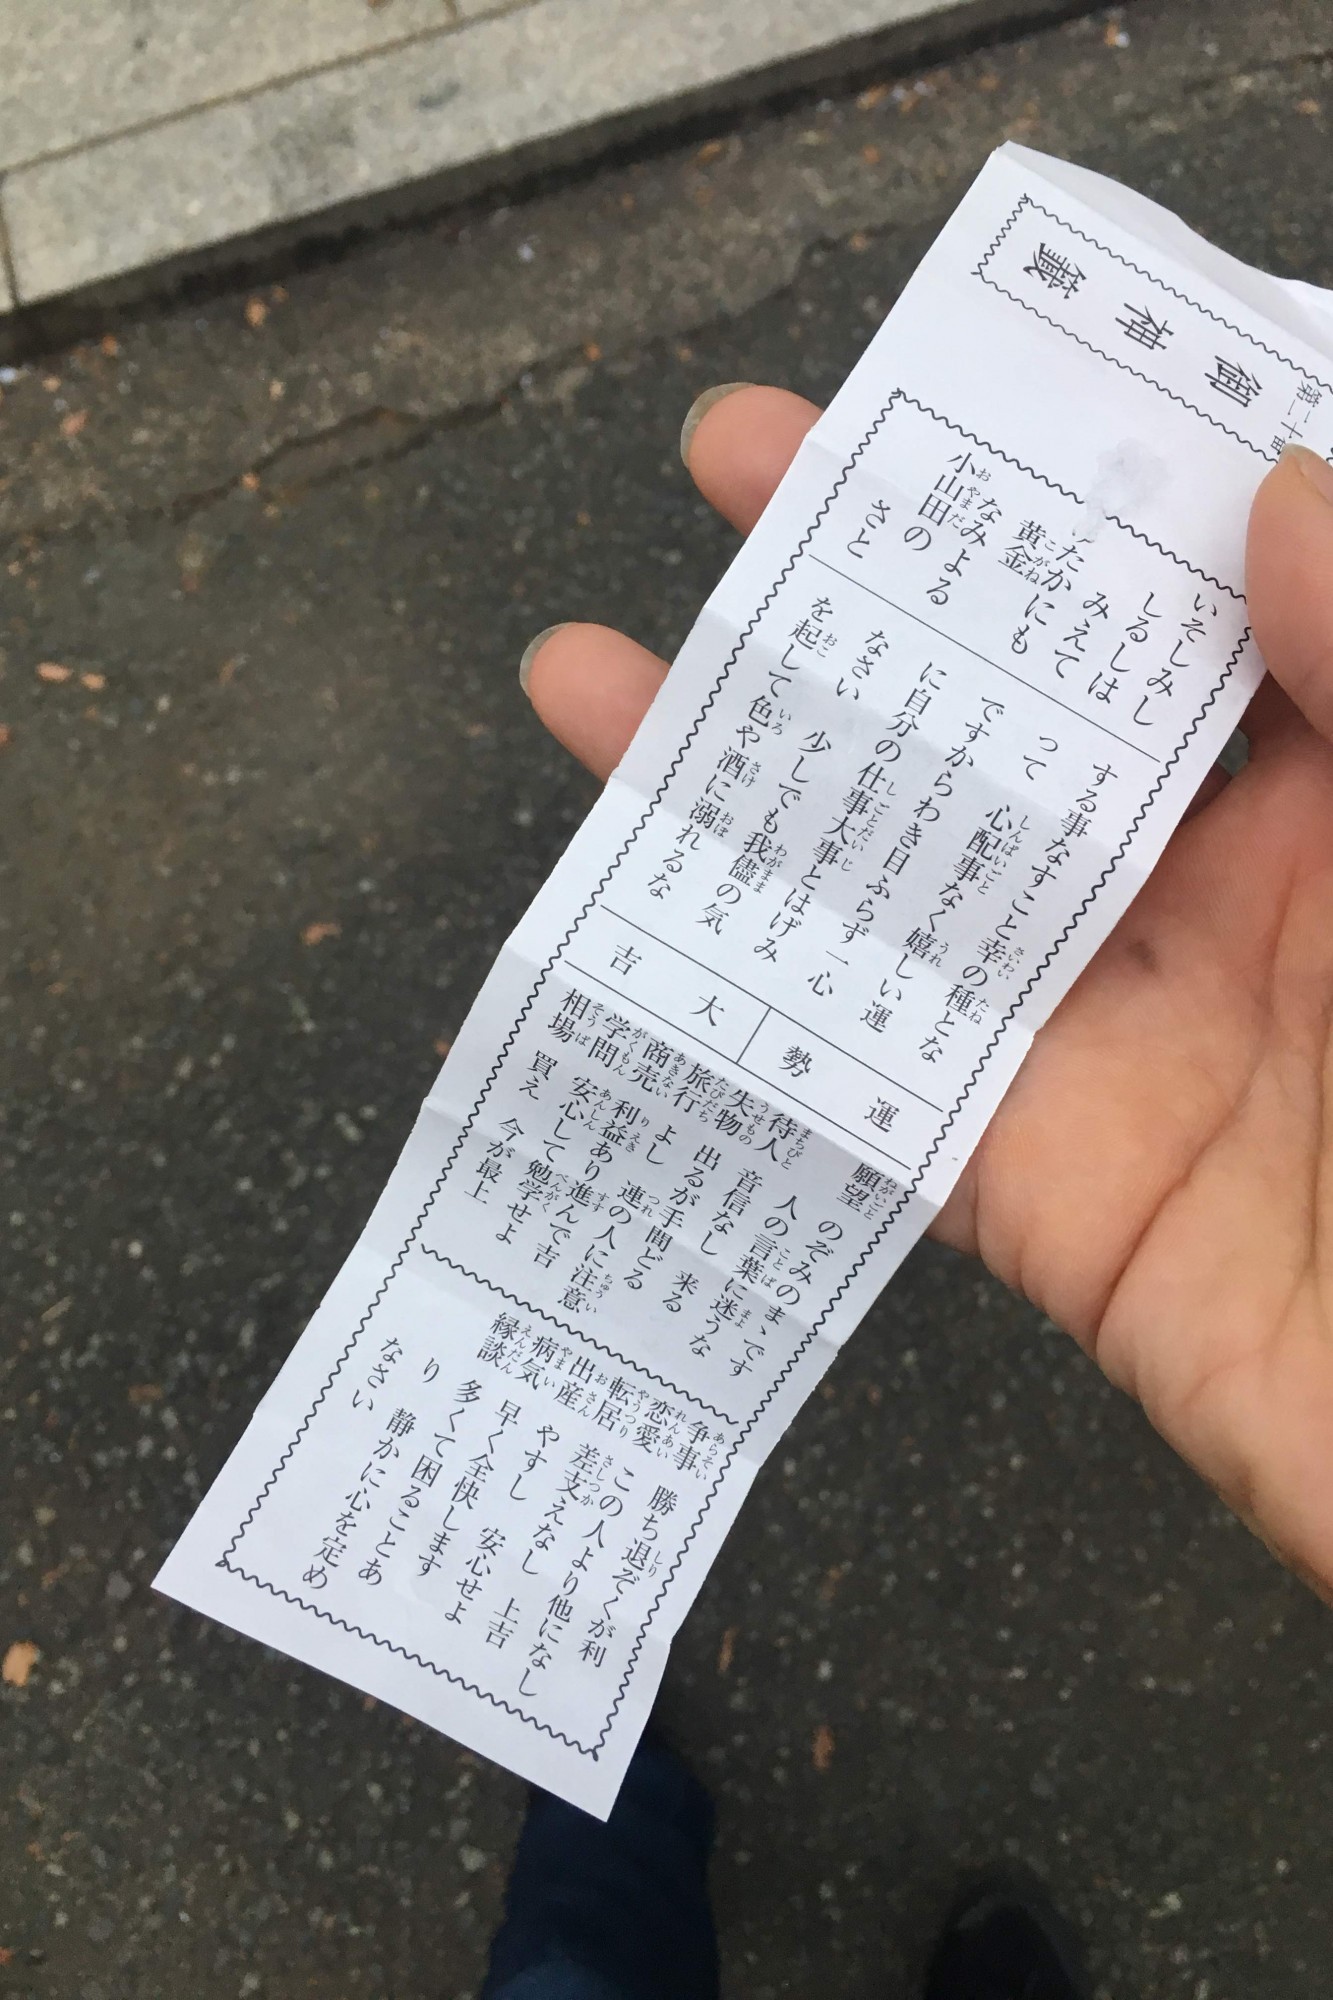 第二十
いそしみし
しるしは
みえて
たかにも
黄金
なみよる
小山田の
さと
する事なすこと幸の種とな
って 心配事なく嬉しい運
ですからわき目ふらず一心
に自分の仕事大事とはげみ
なさい 少しでも我儘の気
を起して色や酒に溺れるな
運勢
大吉
願望 のぞみのまゝです
人の言葉に迷うな
待人 音信なし 来る
失物 出るが手間どる
旅行 よし 連の人に注意
商売 利益あり進んで吉
学問 安心して勉学せよ
相場 買え 今が最上
争事 勝ち退ぞくが利
恋愛 この人より他になし
転居 差支えなし 上吉
出産 やすし 安心せよ
病気 早く全快します
縁談 多くて困ることあ
り 静かに心を定め
なさい